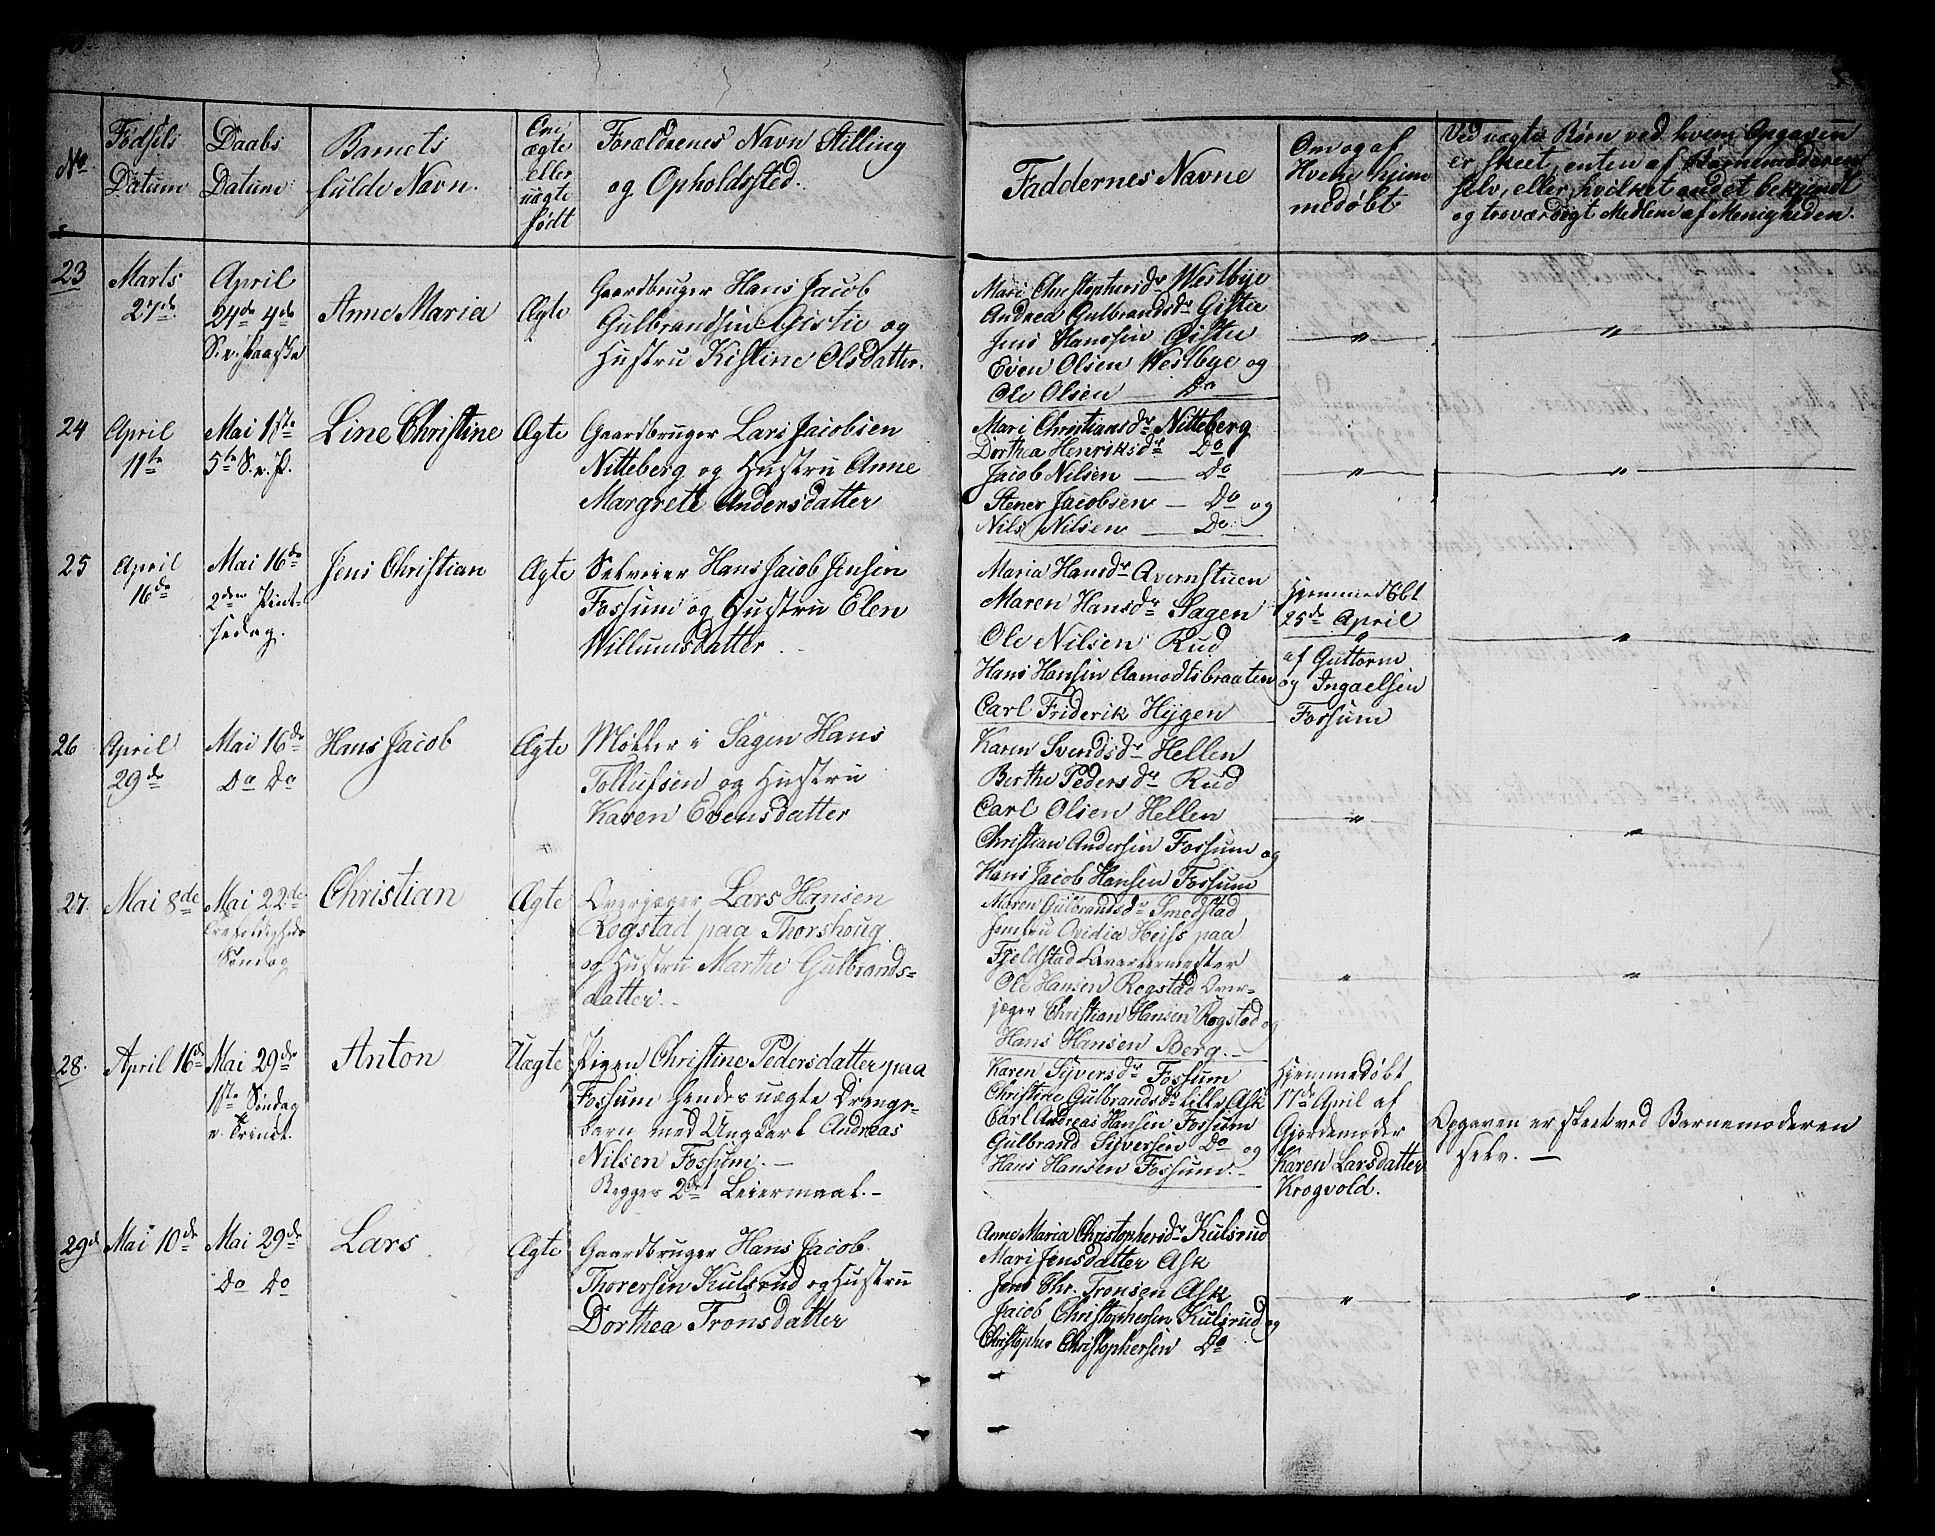 No
Fødsels Datum
Daabs Datum
Barnets
fulde Navn.
Om
ægte
eller
uægte
født
Forældrenes Navn Stilling
og Opholdssted.
Faddernes Navne
Om og af
Hvem hjem
medøbt
Ved uægte Børn ved hvem Opgaven
er skeet, enten af Barnemoderen
selv, eller hvilket andet bekjendt
og troværdigt Medlem af Menigheden.
23
Marts
27de
April
24de 4de
S. e. Paaske
Anne Maria
Ægte
Gaardbruger Hans Jacob
Gulbrandsen Gistie og
Hustru Kistine Olsdatter.
Mari Christophersdr Westbye
Andrea Gulbrandsdr Gistie
Jens Hanssen Gistie
Even Olsen Westbye og
Ole Olsen — Do
"
"
24
April
11te
Mai 1ste
5te S. e. P.
Line Christine
Ægte
Gaardbruger Lars Jacobsen
Nitteberg og Hustru Anne
Margrete Andersdatter
Mari Christiansdr Nitteberg
Dorthea Henriksdr Do
Jacob Nilsen — Do
Stener Jacobsen — Do og
Nils Nilsen — Do
"
"
25
April
16de
Mai 16de
2den Pint-
sedag.
Jens Christian
Ægte
Selveier Hans Jacob Jensen
Fossum og Hustru Elen
Willumsdatter
Maria Hansdr Avernstuen
Maren Hansdr Sagen
Ole Nilsen Rud
Hans Hansen Aamodtsbraaten
Carl Friderik Hygen
Hjemmedøbt
25de April
af Guttorm
og Ingaelsen
Fossum
"
26
April
29de
Mai 16de
Do Do
Hans Jacob
Ægte
Møller i Sagen Hans
Tollufsen og Hustru
Karen Evensdatter
Karen Svendsdr Hellen
Berthe Pedersdr Rud
Carl Olsen Hellen
Christian Andersen Fossum og
Hans Jacob Hansen Fossum
"
"
27.
Mai 8de
Mai 22de
Trefoldigheds
Søndag
Christian
Ægte
Overjæger Lars Hansen
Rogstad paa Thorshoug
og Hustru Marthe Gulbrands-
datter. -
Maren Gulbrandsdr Smedstad
Jomfru Ovidia Heiss paa
Fjeldstad Qvarteermester
Ole Hansen Rogstad Over-
jæger Christian Hansen Rogstad og
Hans Hansen Berg. -
"
"
28.
April 16de
Mai 29de
1ste Søndag
e. Trinit.
Anton
Uægte
Pigen Christine Pedersdatter paa
Fossum hendes uægte Drenge-
barn med Ungkarl Andreas
Nilsen Fossum. -
Begges 2det Leiermaal. -
Karen Syversdr Fossum
Christine Gulbrandsdr Lille Ask
Carl Andreas Hansen Fossum
Gulbrand Syversen Do og
Hans Hansen Fossum. -
Hjemmedøbt
17de April af
Gjordemoder
Karen Larsdatter
Krogvold.
Opgaven er skeet ved Barnemoderen
selv. —
29de
Mai 10de
Mai 29de
Do Do
Lars
Ægte
Gaardbruger Hans Jacob
Thorersen Kulsrud og Hustru
Dorthea Tronsdatter
Anne Maria Christophersdr Kulsrud
Mari Jensdatter Ask
Jens Chr. Tronsen Ask
Jacob Christophersen Kulsrud og
Christopher Christophersen Do
"
"